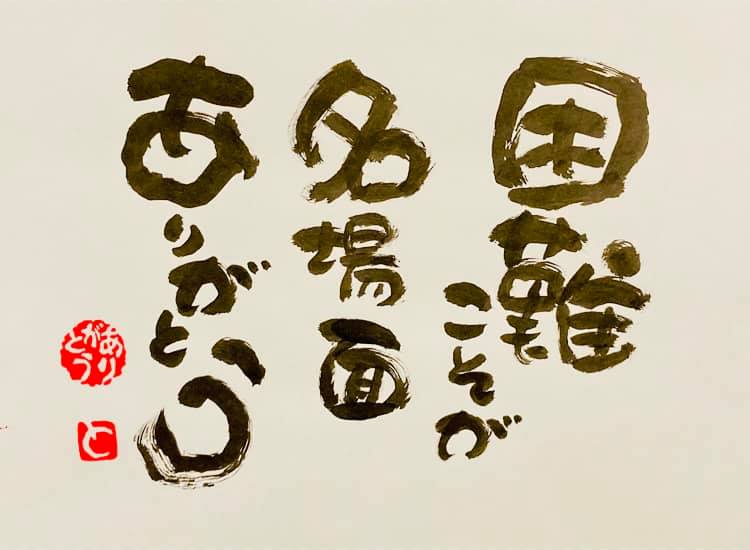 困難
こそが
名場面
ありがとう
ありがとう
と